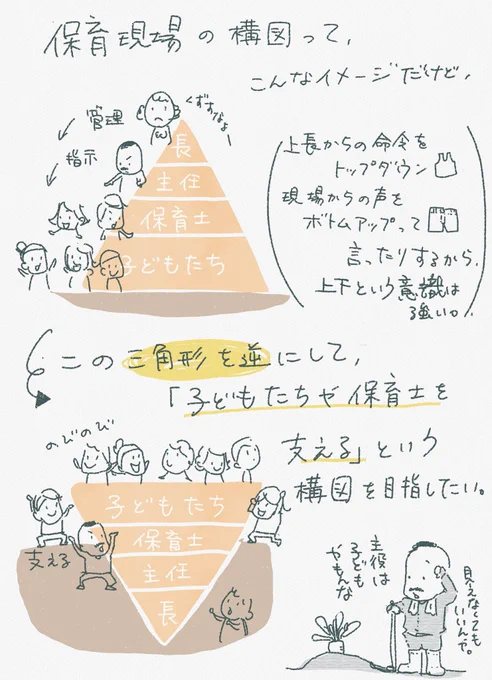 保育現場の構図って、
こんなイメージだけど、
くずすなよー
管理
指示
長
主任
保育士
子どもたち
上長からの命令を
トップダウン
現場からの声を
ボトムアップって
言ったりするから、
上下という意識は
強いかも
この三角形を逆にして、
「子どもたちや保育士を
支える」という
構図を目指したい。
のびのび
子どもたち
保育士
主任
長
支える
主役は
子ども
やもんな
見えなくても
いいんや。